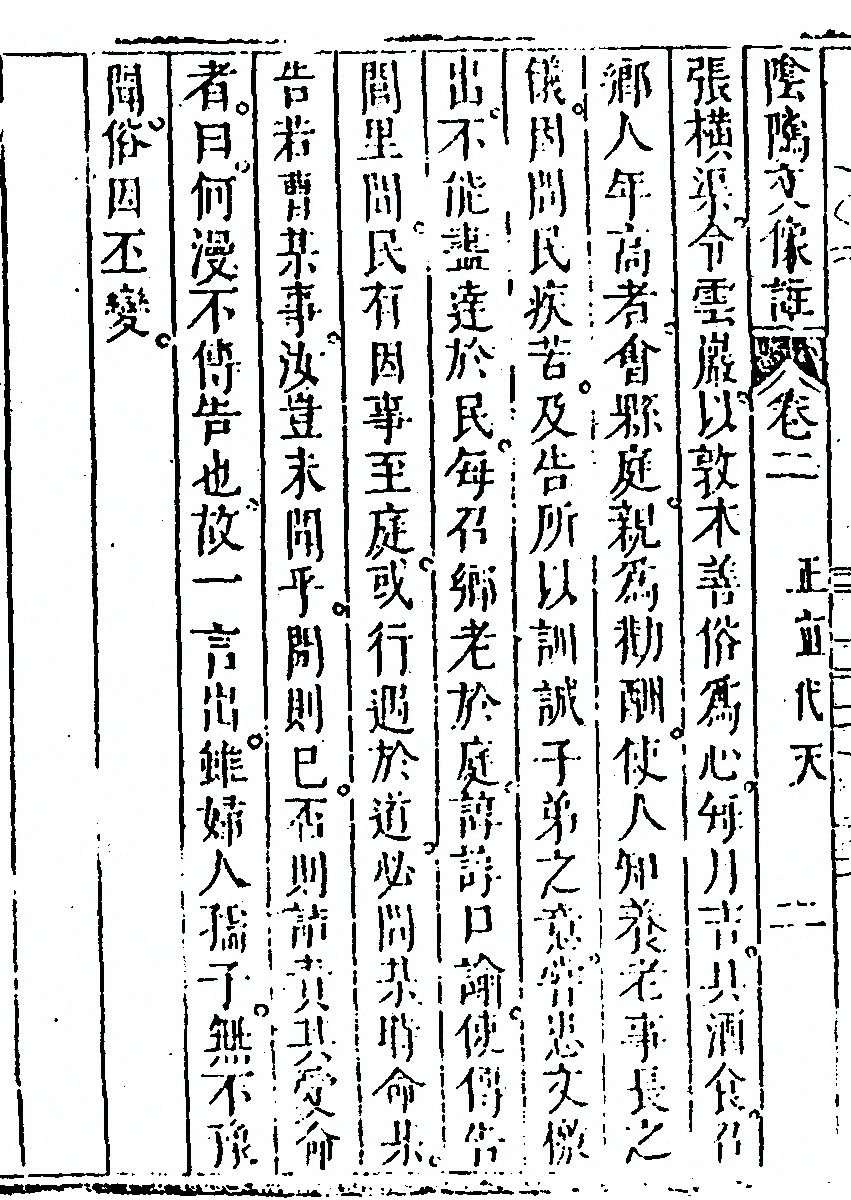 陰隲文像註 卷二 正直代天 二
張橫渠令雲巖以敦本善俗爲心每月吉具酒食召
鄉人年高者會縣庭親爲勸酬使人知養老事長之
儀因問民疾苦及告所以訓誡子弟之意嘗患文檄
出不能盡達於民每召鄉老於庭諄諄口諭使傳告
閭里間民有因事至庭或行遇於道必問某時命某
告若曹某事汝豈未聞乎聞則已否則詰責其受命
者曰何漫不傳告也故一言出雖婦人孺子無不預
聞俗因丕變